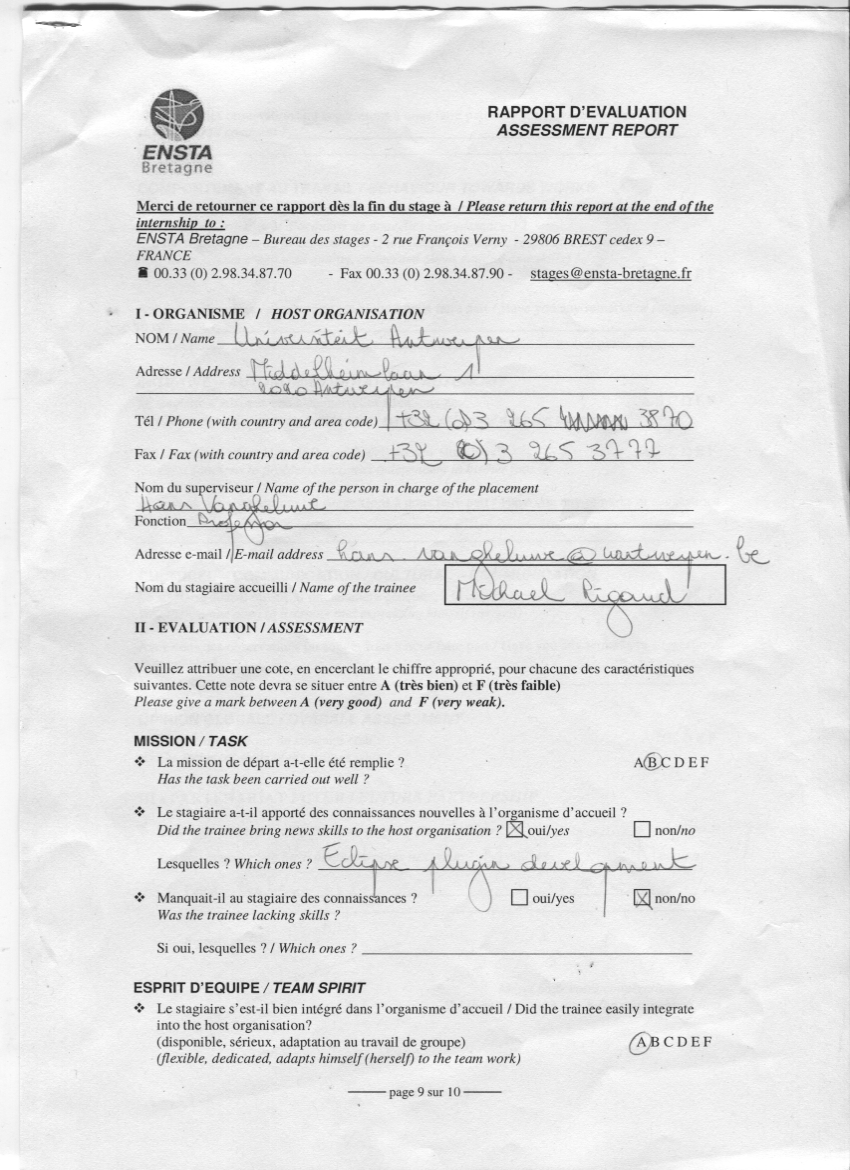 ENSTA
Bretagne
RAPPORT D'EVALUATION
ASSESSMENT REPORT
Merci de retourner ce rapport dès la fin du stage à / Please return this report at the end of the
internship to :
ENSTA Bretagne – Bureau des stages - 2 rue François Verny - 29806 BREST cedex 9 –
FRANCE
☎ 00.33 (0) 2.98.34.87.70 - Fax 00.33 (0) 2.98.34.87.90 - stages@ensta-bretagne.fr
I - ORGANISME / HOST ORGANISATION
NOM / Name Universiteit Antwerpen
Adresse / Address Middelheimlaan 1
2020 Antwerpen
Tél / Phone (with country and area code) +32 (0)3 265 3870
Fax / Fax (with country and area code) +32 (0)3 265 3777
Nom du superviseur / Name of the person in charge of the placement
Hans Vangheluwe
Fonction Professor
Adresse e-mail / E-mail address hans.vangheluwe@uantwerpen.be
Nom du stagiaire accueilli / Name of the trainee Michael Rigaud
II - EVALUATION / ASSESSMENT
Veuillez attribuer une cote, en encerclant le chiffre approprié, pour chacune des caractéristiques
suivantes. Cette note devra se situer entre A (très bien) et F (très faible)
Please give a mark between A (very good) and F (very weak).
MISSION / TASK
❖ La mission de départ a-t-elle été remplie ? A B C D E F
Has the task been carried out well ?
❖ Le stagiaire a-t-il apporté des connaissances nouvelles à l'organisme d'accueil ?
Did the trainee bring news skills to the host organisation ? ☒ oui/yes ☐ non/no
Lesquelles ? Which ones ? Eclipse plugin development
❖ Manquait-il au stagiaire des connaissances ? ☐ oui/yes ☒ non/no
Was the trainee lacking skills ?
Si oui, lesquelles ? / Which ones ?
ESPRIT D'EQUIPE / TEAM SPIRIT
❖ Le stagiaire s'est-il bien intégré dans l'organisme d'accueil / Did the trainee easily integrate
into the host organisation?
(disponible, sérieux, adaptation au travail de groupe) A B C D E F
(flexible, dedicated, adapts himself (herself) to the team work)
page 9 sur 10